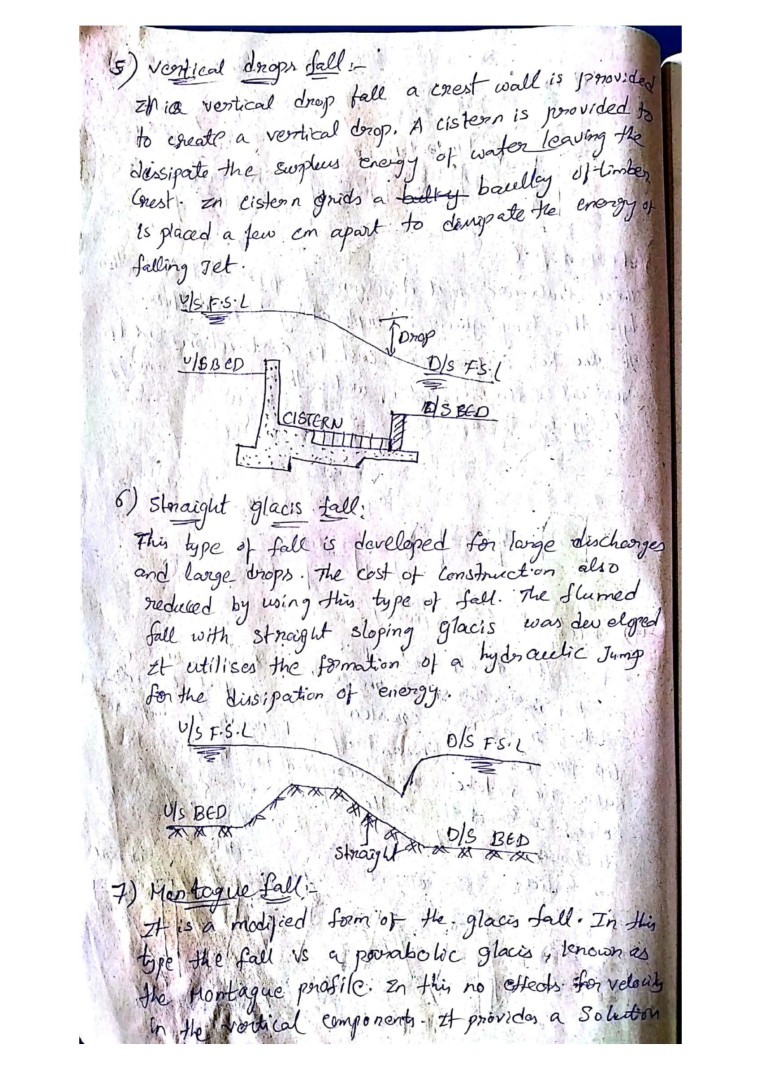 5) Vertical drops fall :-
In a vertical drop fall a crest wall is provided
to create a vertical drop. A cistern is provided to
dissipate the surplus energy of water leaving the
Crest. In cistern grids a baulley of timber
is placed a few cm apart to dissipate the energy of
falling Jet.
U/S F.S.L
Drop
U/S BED
D/S F.S.L
D/S BED
CISTERN
6) Straight glacis fall:
This type of fall is developed for large discharges
and large drops. The cost of construction also
reduced by using this type of fall. The flumed
fall with straight sloping glacis was develgped
It utilises the formation of a hydraulic Jump
for the dissipation of energy.
U/S F.S.L
D/S F.S.L
U/S BED
D/S BED
Straight
7) Montague fall :-
It is a modified form of the glacis fall. In this
type the fall vs a parabolic glacis, known as
the Montague profile. In this no effects for velocity
in the vertical components. It provides a Solution